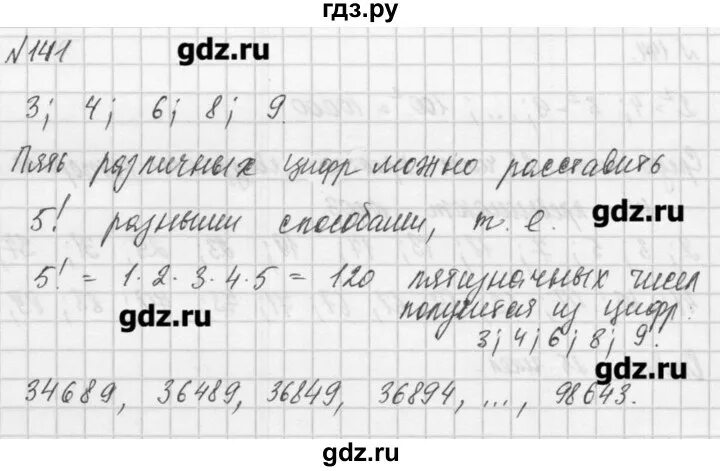 гдз.ру
№141
gdz.ru
3; 4; 6; 8; 9.
Пять различных цифр можно расставить
5! разными способами, т. е.
gdz.ru
5! = 1·2·3·4·5 = 120 пятизначных чисел
получится из цифр:
gdz.ru
3; 4; 6; 8; 9.
gdz.ru
34689, 36489, 36849, 36894, ..., 98643.
gdz.ru